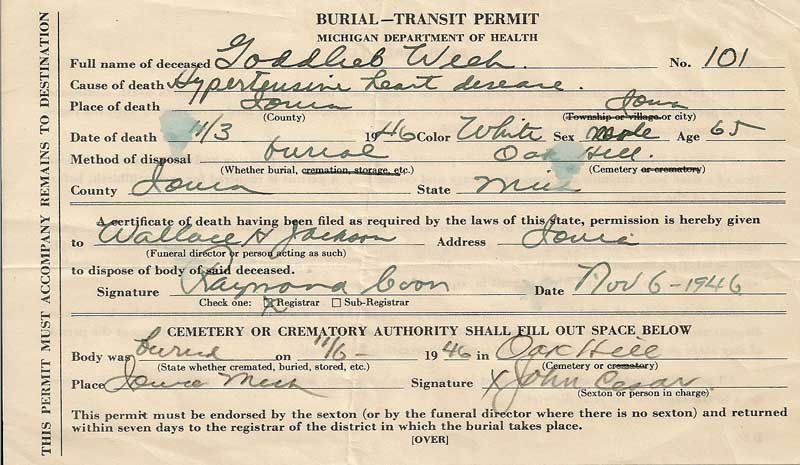 BURIAL—TRANSIT PERMIT
MICHIGAN DEPARTMENT OF HEALTH
Full name of deceased Goddlieb Weeh. No. 101
Cause of death Hypertensive heart disease.
Place of death Ionia Ionia
(County) (Township or village or city)
Date of death 11/3 1946 Color White Sex Male Age 65
Method of disposal burial Oak Hill.
(Whether burial, cremation, storage, etc.) (Cemetery or crematory)
County Ionia State Mich
A certificate of death having been filed as required by the laws of this state, permission is hereby given
to Wallace H Jackson Address Ionia
(Funeral director or person acting as such)
to dispose of body of said deceased.
Signature Raymond Coon Date Nov 6-1946
Check one: X Registrar Sub-Registrar
CEMETERY OR CREMATORY AUTHORITY SHALL FILL OUT SPACE BELOW
Body was buried on 11/6- 1946 in Oak Hill
(State whether cremated, buried, stored, etc.) (Cemetery or crematory)
Place Ionia Mich Signature X John Cesar
(Sexton or person in charge)
This permit must be endorsed by the sexton (or by the funeral director where there is no sexton) and returned
within seven days to the registrar of the district in which the burial takes place.
[OVER]
THIS PERMIT MUST ACCOMPANY REMAINS TO DESTINATION